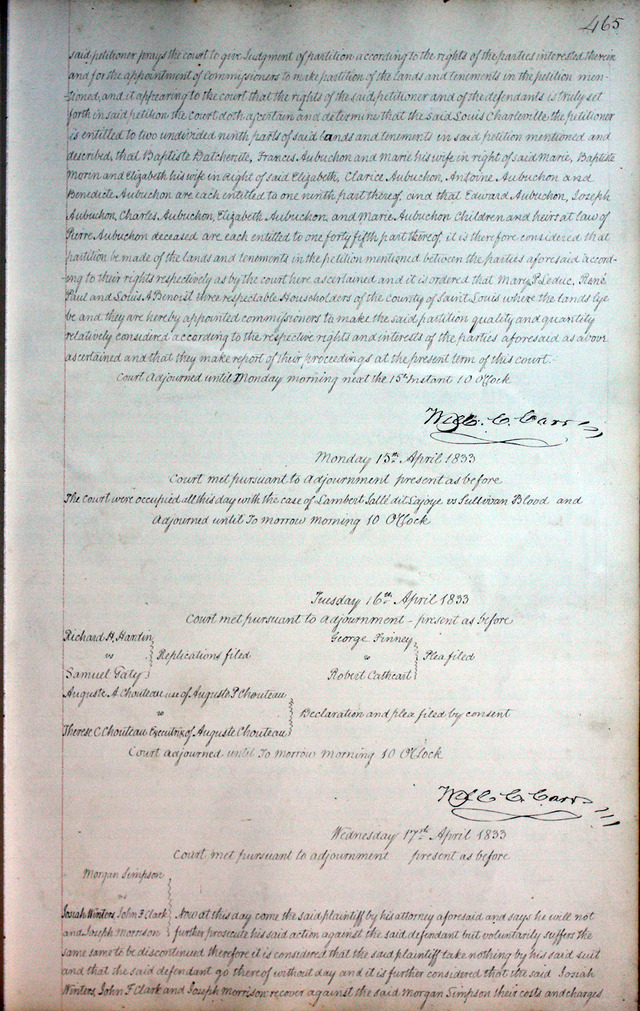 465
said petitioner prays the court to give Judgment of partition according to the rights of the parties interested therein
and for the appointment of Commissioners to make partition of the lands and tenements in the petition men-
-tioned, and it appearing to the court that the rights of the said petitioner and of the defendants is truly set
forth in said petition the court doth ascertain and determine that the said Louis Charleville the petitioner
is entitled to two undivided ninth parts of said lands and tenements in said petition mentioned and
described, that Baptiste Datcherite, Frances Aubuchon and Marie his wife in right of said Marie, Baptiste
Morin and Elizabeth his wife in right of said Elizabeth, Clarice Aubuchon, Antoine Aubuchon and
Benedicte Aubuchon are each entitled to one ninth part thereof, and that Edward Aubuchon, Joseph
Aubuchon, Charles Aubuchon, Elizabeth Aubuchon, and Marie Aubuchon Children and heirs at law of
Pierre Aubuchon deceased are each entitled to one forty fifth part thereof, it is therefore considered that
partition be made of the lands and tenements in the petition mentioned between the parties aforesaid accord-
ing to their rights respectively as by the court here ascertained and it is ordered that Mary P. Leduc, René
Paul and Louis A Benoist three respectable Householders of the County of Saint Louis where the lands lye
be and they are hereby appointed commissioners to make the said partition quality and quantity
relatively considered according to the respective rights and interests of the parties aforesaid as above
ascertained and that they make report of their proceedings at the present term of this court.
Court Adjourned until Monday morning next the 15th Instant 10 O'Clock
Will. C. Carr
Monday 15th April 1833
Court met pursuant to Adjournment present as before
The Court were occupied all this day with the case of Lambert Salle dit Lajoye vs Sullivan Blood and
Adjourned until To Morrow Morning 10 O'Clock
Tuesday 16th April 1833
Court met pursuant to adjournment – present as before
Richard H. Hardin
vs
Samuel Gaty
Replications filed
George Finney
vs
Robert Cathcart
Plea filed
Auguste A. Chouteau use of Auguste P. Chouteau
vs
Therese C Chouteau Executrix of Auguste Chouteau
Declaration and plea filed by consent
Court adjourned until To Morrow Morning 10 O'Clock
Will C. Carr
Wednesday 17th April 1833
Court met pursuant to adjournment present as before
Morgan Simpson
vs
Josiah Winters, John F Clark
and Joseph Morrison
Now at this day come the said plaintiff by his attorney aforesaid and says he will not
further prosecute his said action against the said defendant but voluntarily suffers the
same same to be discontinued therefore it is considered that the said plaintiff take nothing by his said suit
and that the said defendant go thereof without day and it is further considered that the said Josiah
Winters, John F Clark and Joseph Morrison recover against the said Morgan Simpson their costs and charges